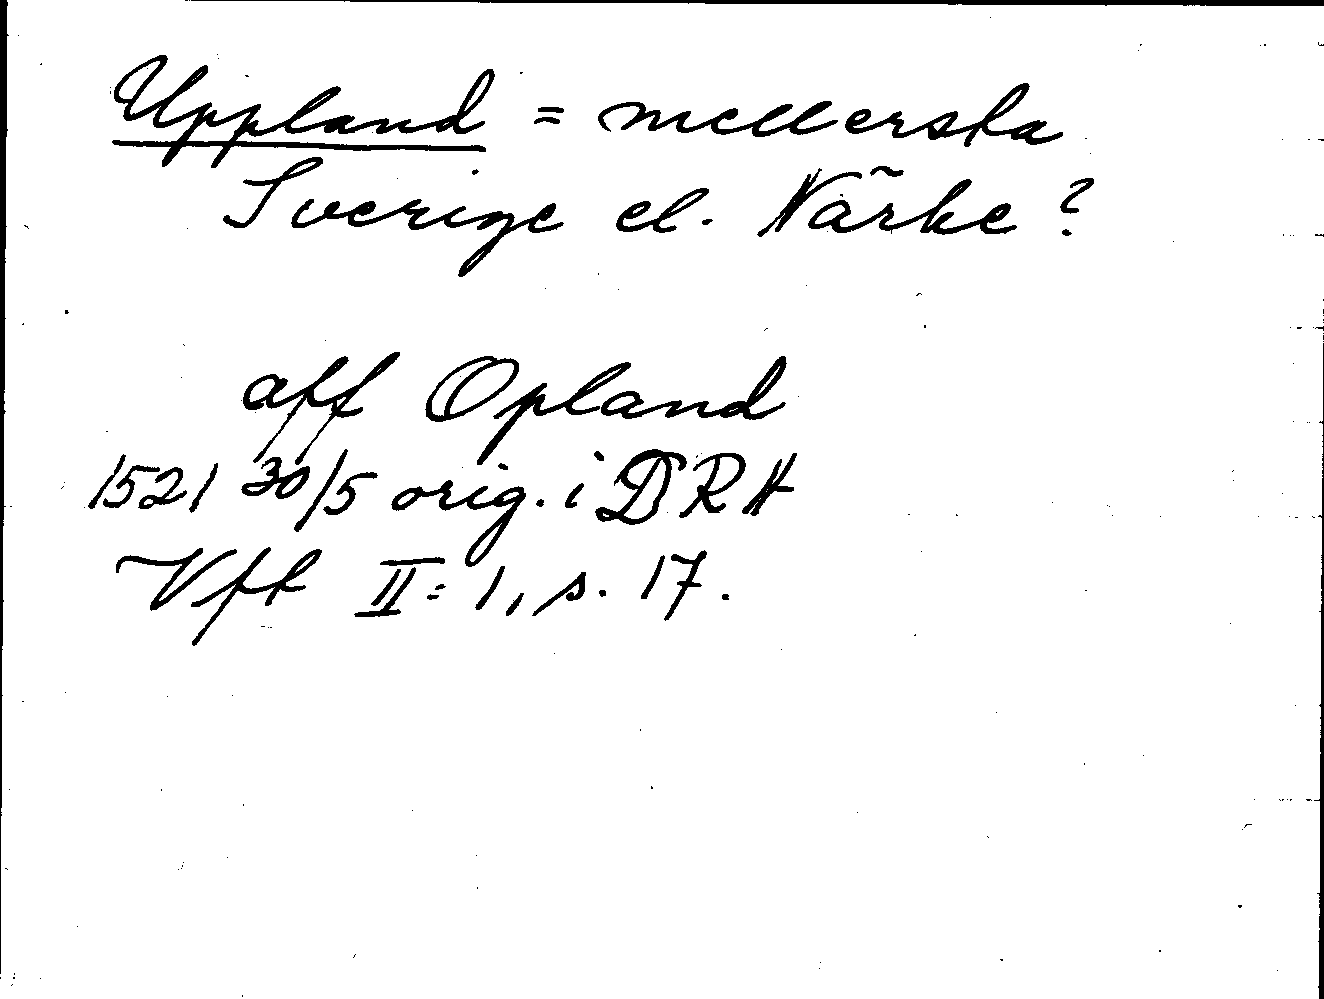 Uppland = mellersta
Sverige el. Närke?
aff Opland
1521 30/5 orig. i DRA
Vff II:1, s. 17.